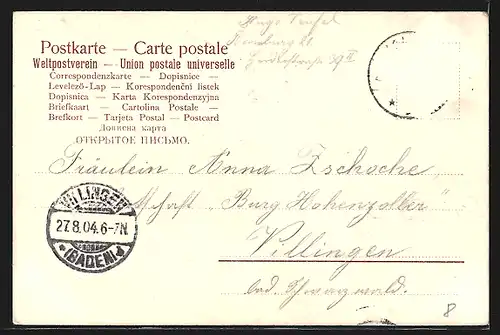 Hugo Teufel
Postkarte — Carte postale
Weltpostverein — Union postale universelle
Correspondenzkarte — Dopisnice —
Levelező-Lap — Korespondenční lístek
Dopisnica — Karta Korespondenzyjna
Briefkaart — Cartolina Postale —
Brefkort — Tarjeta Postal — Postcard
Дописна карта
ОТКРЫТОЕ ПИСЬМО.
Fräulein Anna Zschoche
"Burg Hohenzoller"
VILLINGEN
27.8.04.6-7N
(BADEN)
Villingen
bad. Schwarzwald.
8